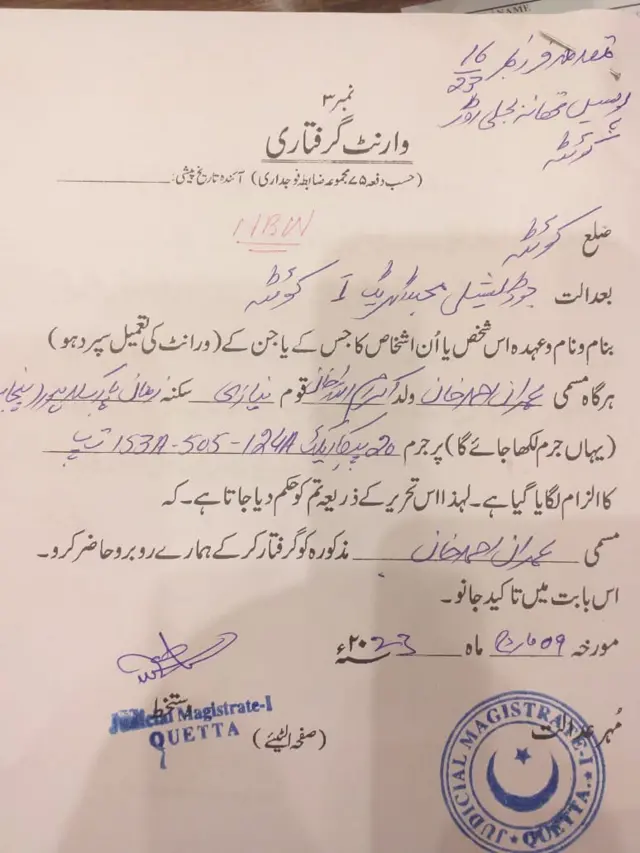 NAME
مقدمہ نمبر 16/23
پولیس تھانہ بجلی روڈ
کوئٹہ
نمبر ۳
وارنٹ گرفتاری
(حسب دفعہ ۷۵ مجموعہ ضابطہ فوجداری) آئندہ تاریخ پیشی:
NBW
ضلع کوئٹہ
بعدالت جوڈیشل مجسٹریٹ I کوئٹہ
بنام و نام و عہدہ اس شخص یا اُن اشخاص کا جس کے یا جن کے (ورانٹ کی تعمیل سپرد ہو)
ہرگاہ مسمی عمران احمد خان ولد اکرام اللہ خان قوم نیازی سکنہ زمان پارک لاہور (پنجاب
(یہاں جرم لکھا جائے گا) پر جرم 20 پیکا ایکٹ 153A-505-124A ت پ
کا الزام لگایا گیا ہے۔ لہذا اس تحریر کے ذریعہ تم کو حکم دیا جاتا ہے۔ کہ
مسمی عمران احمد خان مذکورہ کو گرفتار کر کے ہمارے روبرو حاضر کرو۔
اس بابت میں تاکید جانو۔
مورخہ 09 مارچ ماہ ۲۰23ء
دستخط
Judicial Magistrate-I
QUETTA
(صفحہ الٹیئے)
مُہر عدالت
JUDICIAL MAGISTRATE-I
QUETTA